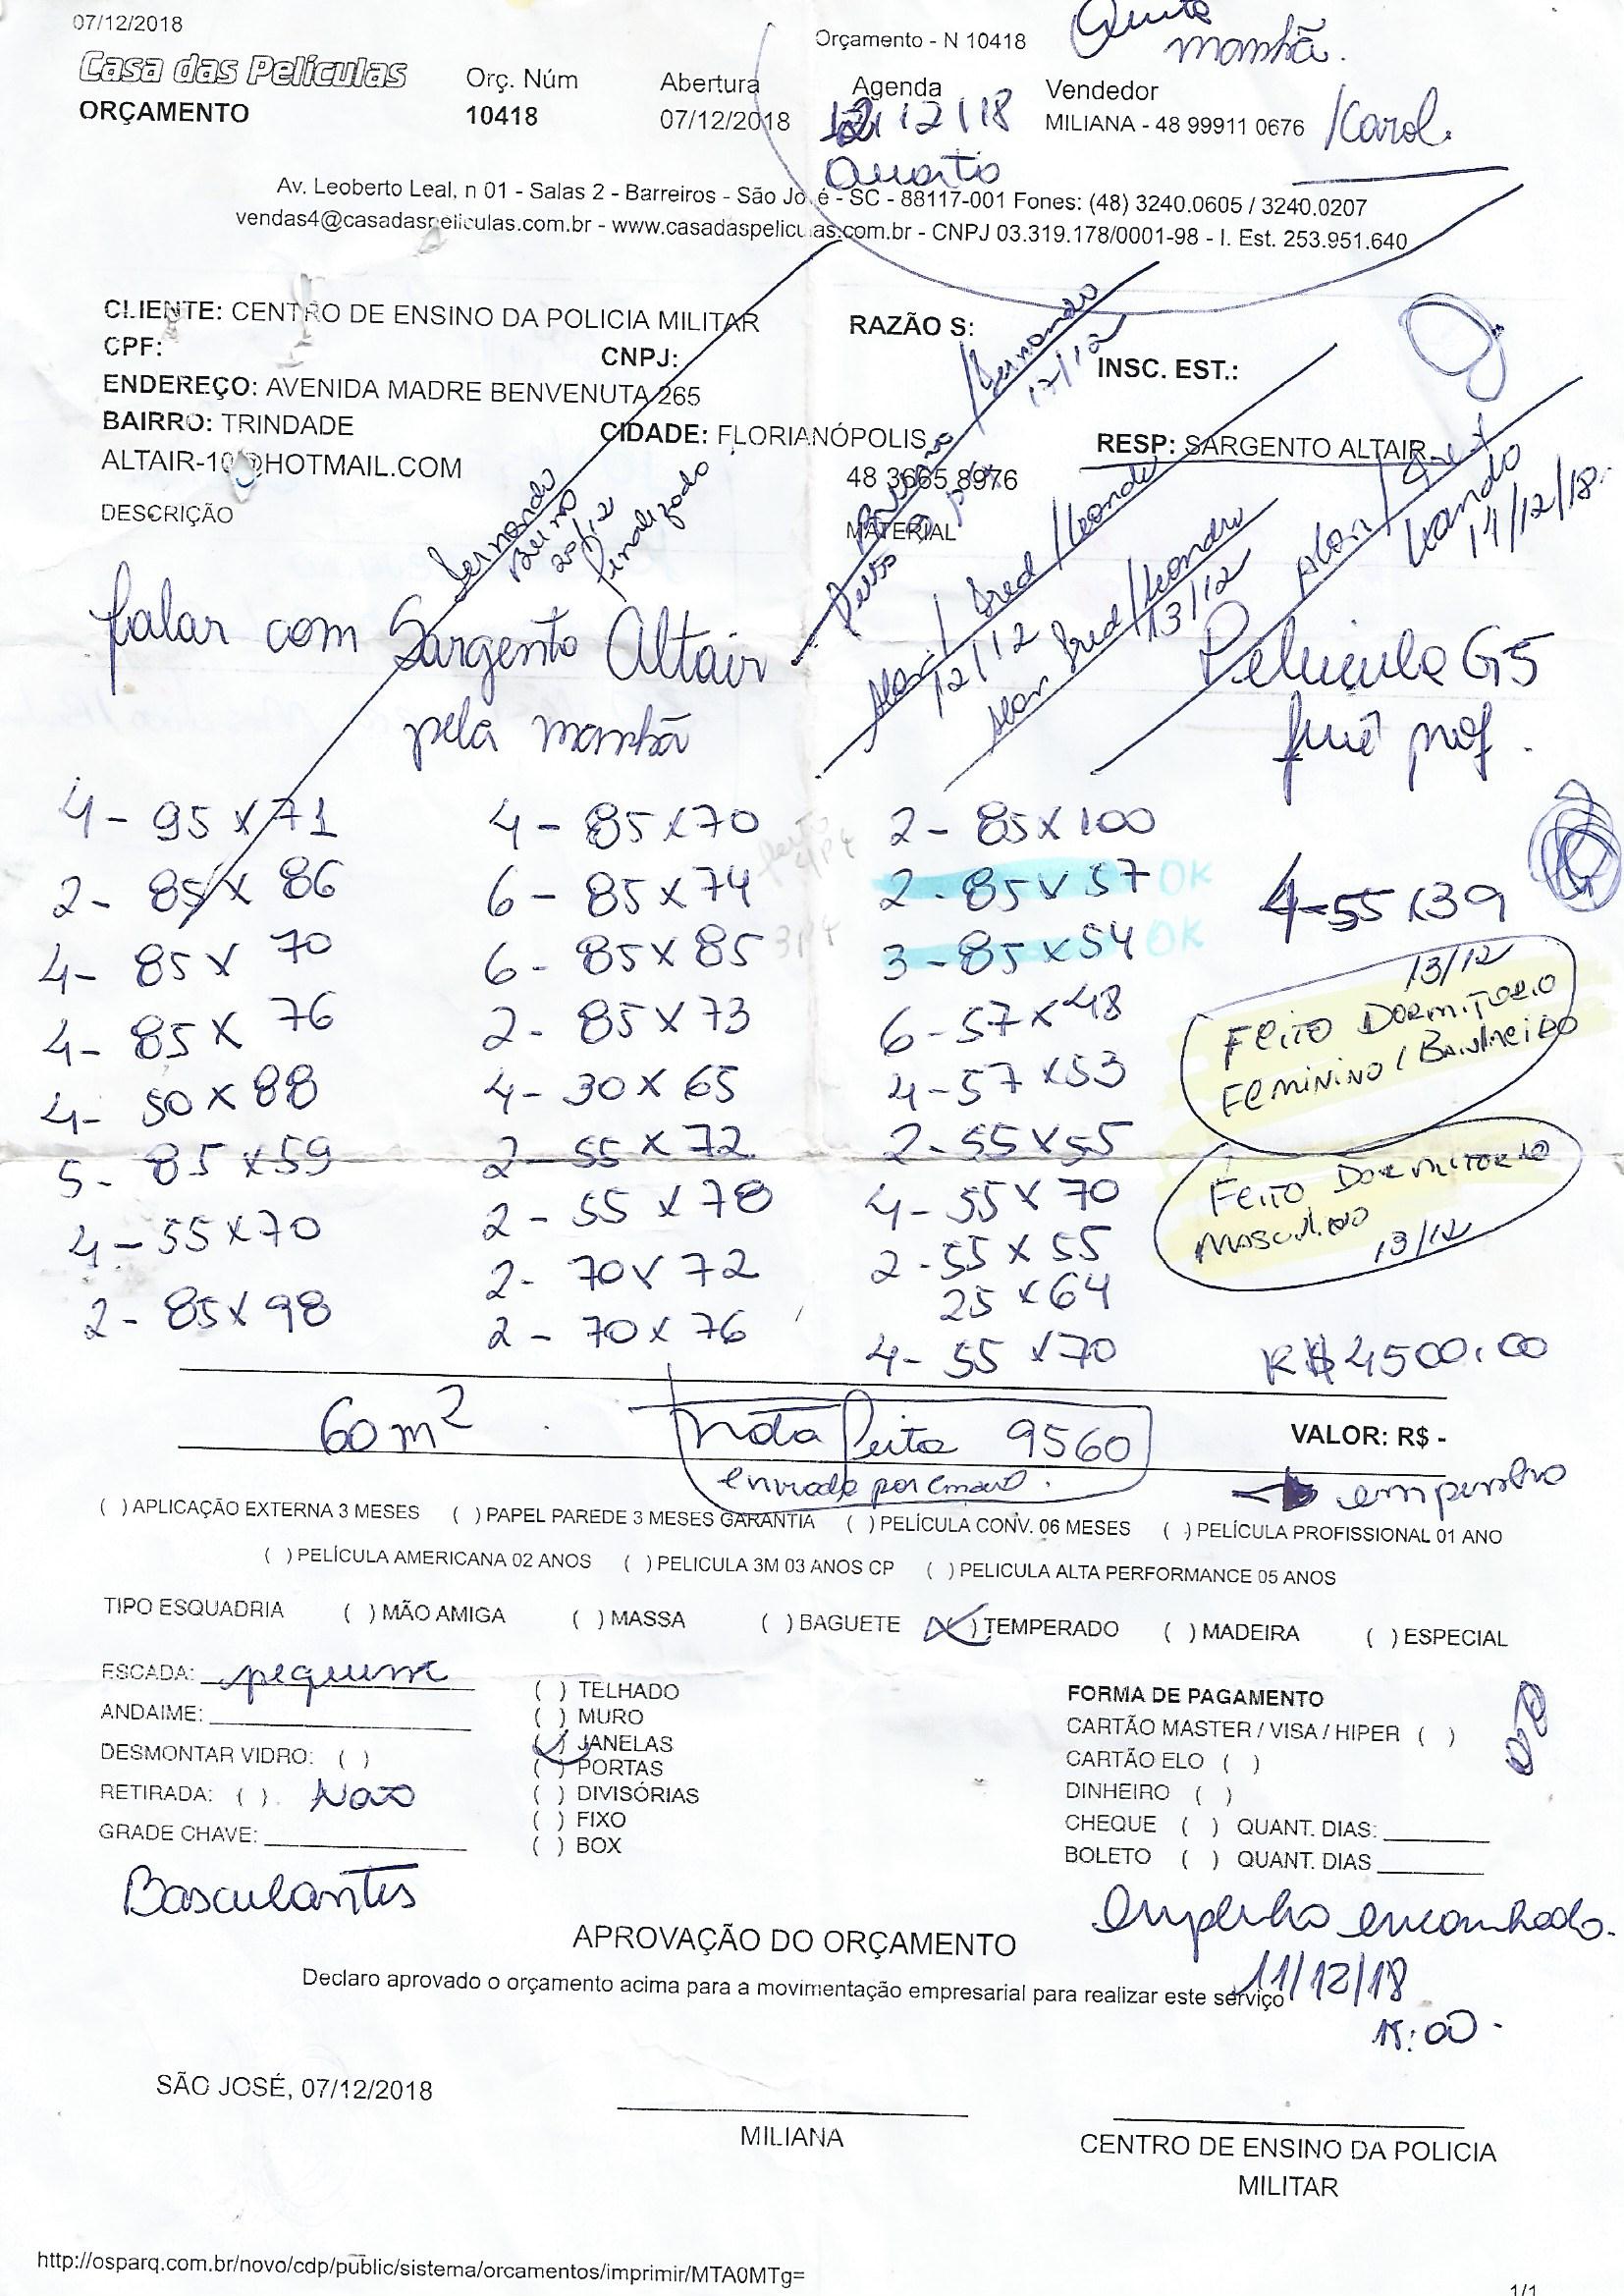 07/12/2018
Orçamento - N 10418
manhã.
Casa das Películas
ORÇAMENTO
Orç. Núm
10418
Abertura
07/12/2018
Agenda
12/12/18
Quarta
Vendedor
MILIANA - 48 99911 0676
Karol.
Av. Leoberto Leal, n 01 - Salas 2 - Barreiros - São José - SC - 88117-001 Fones: (48) 3240.0605 / 3240.0207
vendas4@casadaspeliculas.com.br - www.casadaspeliculas.com.br - CNPJ 03.319.178/0001-98 - I. Est. 253.951.640
CLIENTE: CENTRO DE ENSINO DA POLICIA MILITAR
RAZÃO S:
CPF:
CNPJ:
INSC. EST.:
ENDEREÇO: AVENIDA MADRE BENVENUTA 265
BAIRRO: TRINDADE
CIDADE: FLORIANÓPOLIS
RESP: SARGENTO ALTAIR
ALTAIR-10@HOTMAIL.COM
48 3665 8976
DESCRIÇÃO
MATERIAL
Fernando
20/12
Finalizado
Fernando
17/12
Alan / Fred / Leandro
12/12
Alan Fred / Leandro
13/12
Alan / Fred
Leandro
14/12/18.
falar com Sargento Altair
pela manhã
Pelicula G5
fumê prof.
4 - 95 x 71
2 - 85 x 86
4 - 85 x 70
4 - 85 x 76
4 - 50 x 88
5 - 85 x 59
4 - 55 x 70
2 - 85 x 98
4 - 85 x 70
6 - 85 x 74
6 - 85 x 85
2 - 85 x 73
4 - 30 x 65
2 - 55 x 72
2 - 55 x 78
2 - 70 x 72
2 - 70 x 76
2 - 85 x 100
2 - 85 x 57 OK
3 - 85 x 54 OK
6 - 57 x 48
4 - 57 x 53
2 - 55 x 55
4 - 55 x 70
2 - 55 x 55
25 x 64
4 - 55 x 70
4 - 55 x 39
13/12
FEITO DORMITORIO
FEMININO / BANHEIRO
FEITO DORMITORIO
MASCULINO
13/12
R$ 4500,00
60 m²
Nota feita 9560
enviada por email.
VALOR: R$ -
empenho
( ) APLICAÇÃO EXTERNA 3 MESES ( ) PAPEL PAREDE 3 MESES GARANTIA ( ) PELÍCULA CONV. 06 MESES ( ) PELÍCULA PROFISSIONAL 01 ANO
( ) PELÍCULA AMERICANA 02 ANOS ( ) PELICULA 3M 03 ANOS CP ( ) PELICULA ALTA PERFORMANCE 05 ANOS
TIPO ESQUADRIA ( ) MÃO AMIGA ( ) MASSA ( ) BAGUETE (X) TEMPERADO ( ) MADEIRA ( ) ESPECIAL
ESCADA: pequena
ANDAIME:
DESMONTAR VIDRO: ( )
RETIRADA: ( ) Não
GRADE CHAVE:
Basculantes
( ) TELHADO
( ) MURO
(✓) JANELAS
( ) PORTAS
( ) DIVISÓRIAS
( ) FIXO
( ) BOX
FORMA DE PAGAMENTO
CARTÃO MASTER / VISA / HIPER ( )
CARTÃO ELO ( )
DINHEIRO ( )
CHEQUE ( ) QUANT. DIAS:
BOLETO ( ) QUANT. DIAS
Empenho encaminhado.
11/12/18
15:00
APROVAÇÃO DO ORÇAMENTO
Declaro aprovado o orçamento acima para a movimentação empresarial para realizar este serviço
SÃO JOSÉ, 07/12/2018
MILIANA
CENTRO DE ENSINO DA POLICIA
MILITAR
http://osparq.com.br/novo/cdp/public/sistema/orcamentos/imprimir/MTA0MTg=
1/1